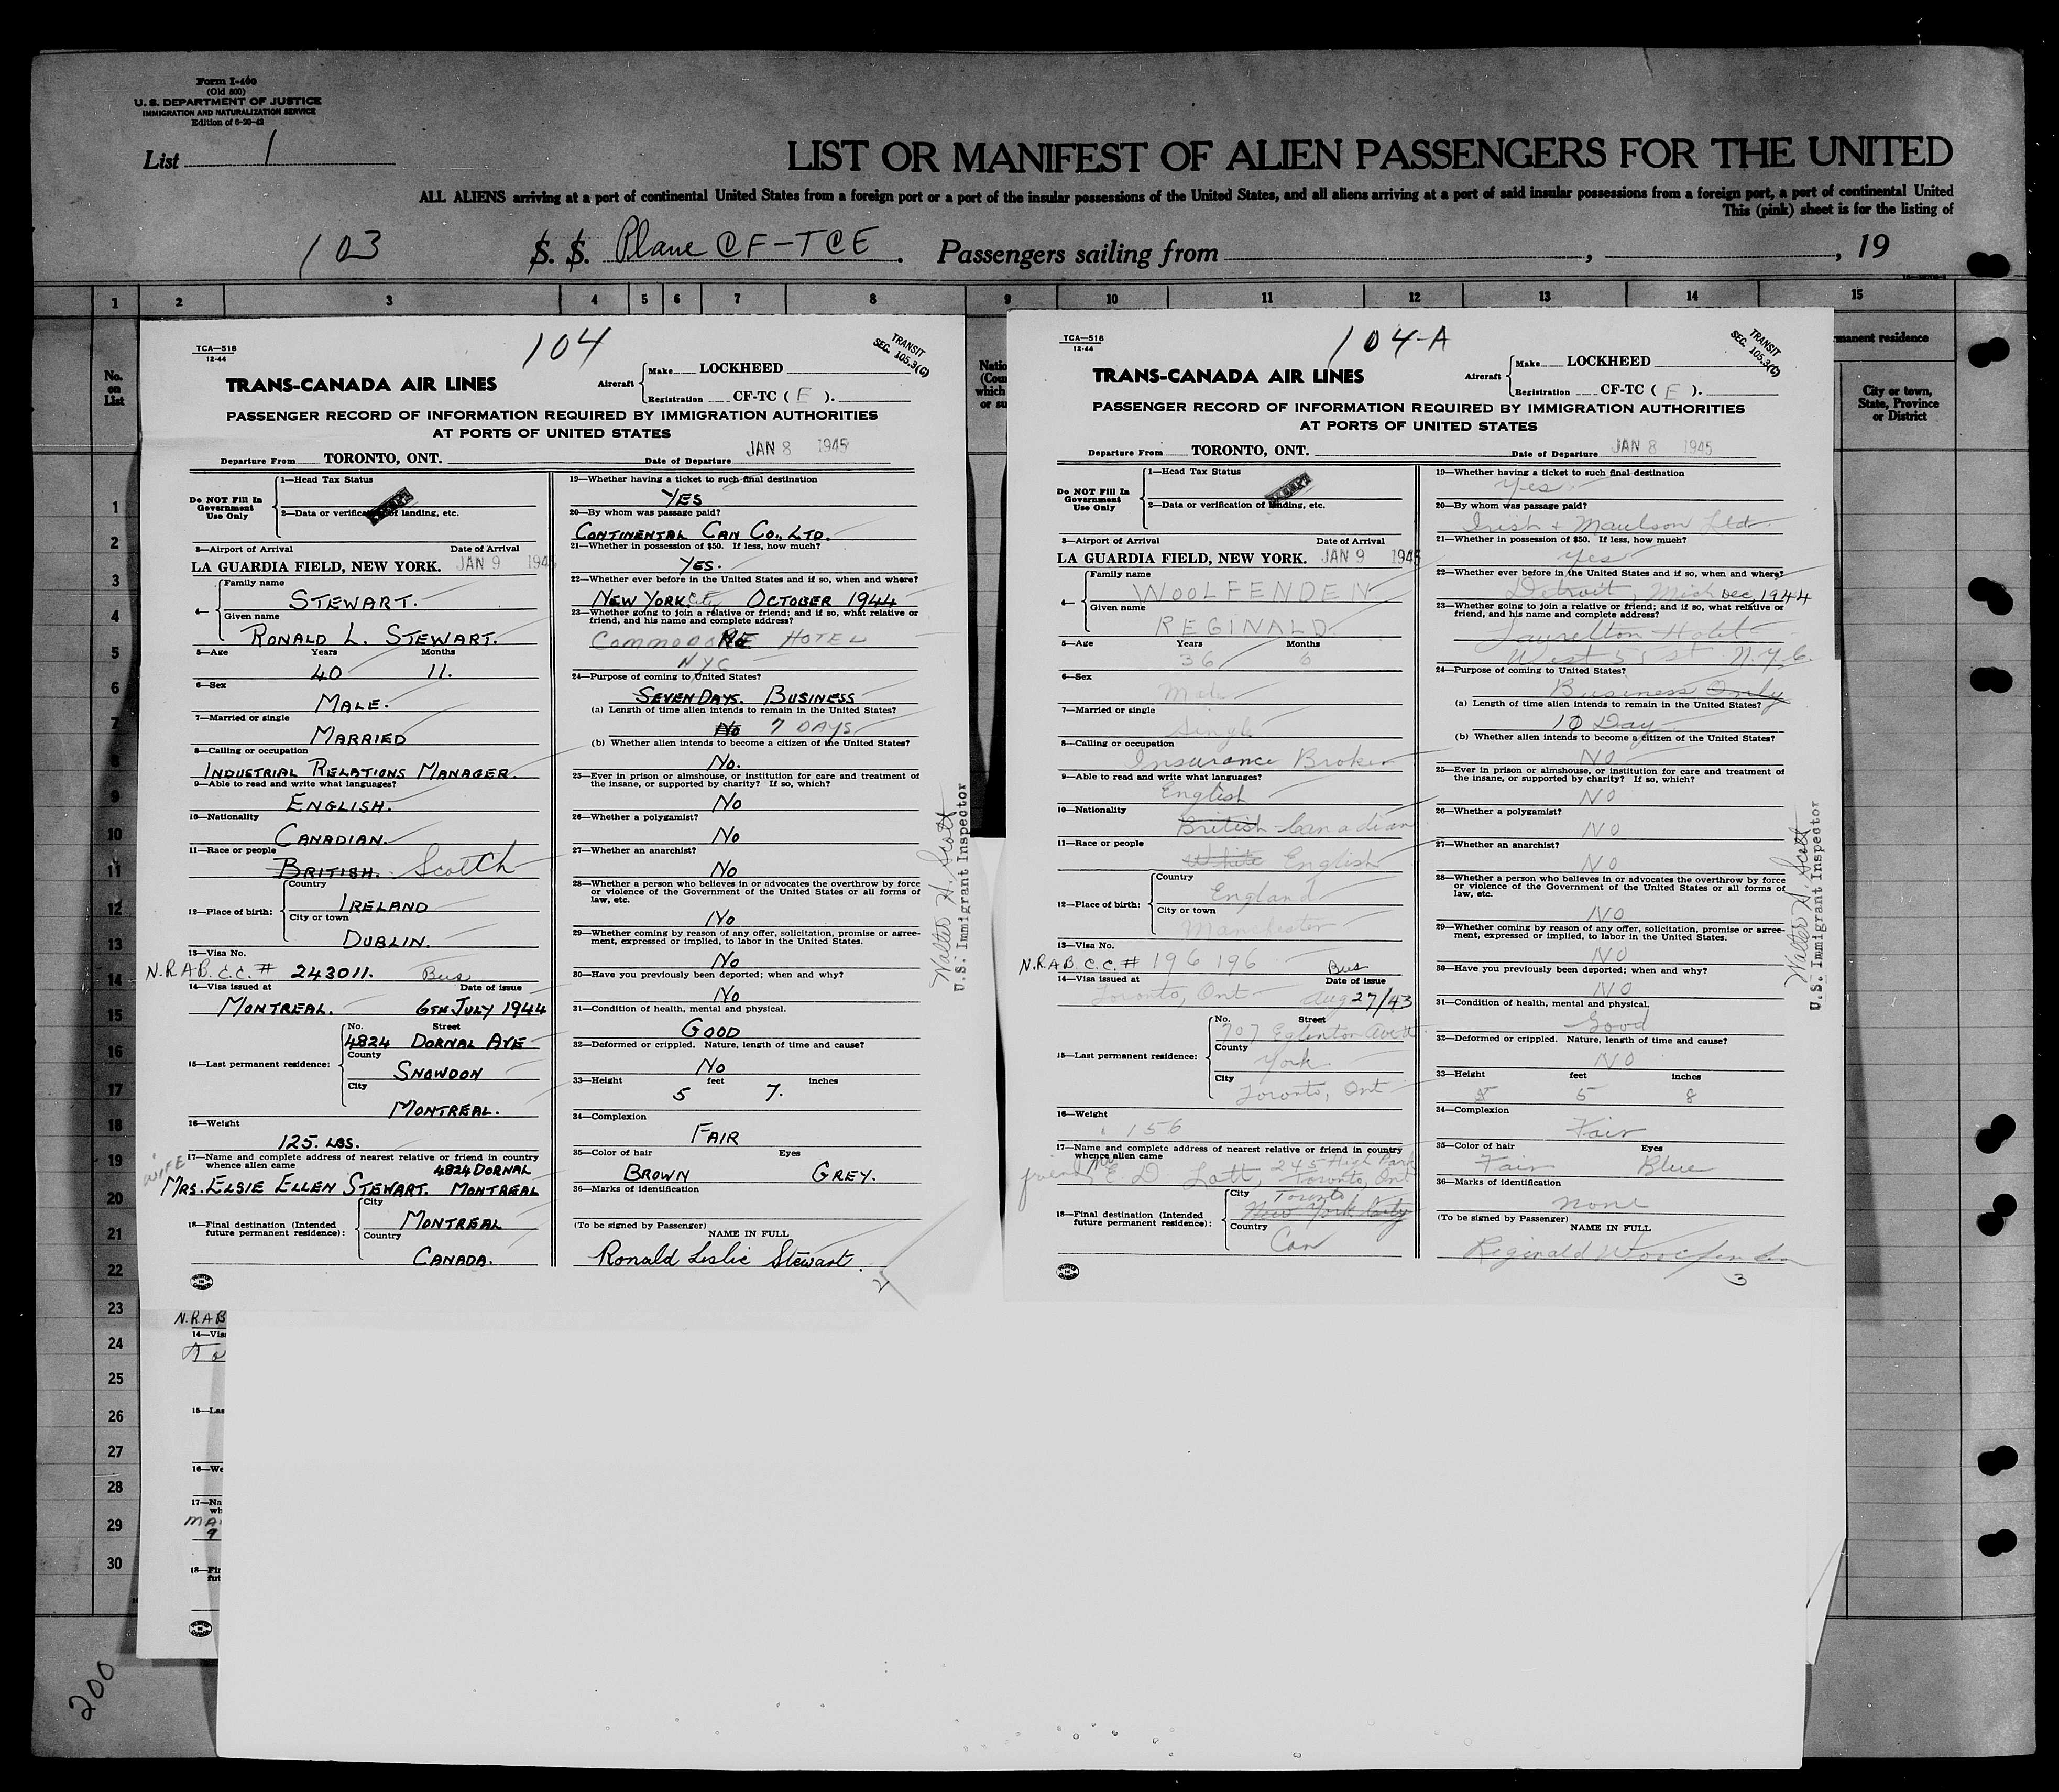 Form I-400
(Old 500)
U. S. DEPARTMENT OF JUSTICE
IMMIGRATION AND NATURALIZATION SERVICE
Edition of 6-20-42
List 1
LIST OR MANIFEST OF ALIEN PASSENGERS FOR THE UNITED
ALL ALIENS arriving at a port of continental United States from a foreign port or a port of the insular possessions of the United States, and all aliens arriving at a port of said insular possessions from a foreign port, a port of continental United
This (pink) sheet is for the listing of
103 S. S. Plane CF-TCE. Passengers sailing from , , 19
1 2 3 4 5 6 7 8 9 10 11 12 13 14 15
No.
on
List
Natio
(Coun
which
or su
manent residence
City or town,
State, Province
or District
1
2
3
4
5
6
7
8
9
10
11
12
13
14
15
16
17
18
19
20
21
22
23
24
25
26
27
28
29
30
200
104
TCA—518
12-44
TRANSIT
SEC. 105.3(C)
TRANS-CANADA AIR LINES
Aircraft
Make LOCKHEED
Registration CF-TC ( E ).
PASSENGER RECORD OF INFORMATION REQUIRED BY IMMIGRATION AUTHORITIES
AT PORTS OF UNITED STATES
Departure From TORONTO, ONT. Date of Departure JAN 8 1945
Do NOT Fill In
Government
Use Only
1—Head Tax Status
2—Data or verification of landing, etc.
3—Airport of Arrival Date of Arrival
LA GUARDIA FIELD, NEW YORK. JAN 9 1945
4—
Family name
STEWART.
Given name
RONALD L. STEWART.
5—Age Years Months
40 11.
6—Sex
MALE.
7—Married or single
MARRIED
8—Calling or occupation
INDUSTRIAL RELATIONS MANAGER.
9—Able to read and write what languages?
ENGLISH.
10—Nationality
CANADIAN.
11—Race or people
BRITISH. Scotch
12—Place of birth:
Country
IRELAND
City or town
DUBLIN.
13—Visa No.
N.R.A.B. C.C. # 243011. Bus
14—Visa issued at Date of issue
MONTREAL. 6TH JULY 1944
15—Last permanent residence:
No. Street
4824 DORNAL AVE
County
SNOWDON
City
MONTREAL.
16—Weight
125. LBS.
17—Name and complete address of nearest relative or friend in country
whence alien came 4824 DORNAL
WIFE
MRS. ELSIE ELLEN STEWART. MONTREAL
18—Final destination (Intended
future permanent residence):
City
MONTREAL
Country
CANADA.
19—Whether having a ticket to such final destination
YES
20—By whom was passage paid?
CONTINENTAL CAN CO., LTD.
21—Whether in possession of $50. If less, how much?
YES.
22—Whether ever before in the United States and if so, when and where?
NEW YORK City OCTOBER 1944
23—Whether going to join a relative or friend; and if so, what relative or
friend, and his name and complete address?
COMMODORE HOTEL
NYC
24—Purpose of coming to United States?
SEVEN DAYS. BUSINESS
(a) Length of time alien intends to remain in the United States?
No 7 DAYS
(b) Whether alien intends to become a citizen of the United States?
No.
25—Ever in prison or almshouse, or institution for care and treatment of
the insane, or supported by charity? If so, which?
No
26—Whether a polygamist?
No
27—Whether an anarchist?
No
28—Whether a person who believes in or advocates the overthrow by force
or violence of the Government of the United States or all forms of
law, etc.
No
29—Whether coming by reason of any offer, solicitation, promise or agree-
ment, expressed or implied, to labor in the United States.
No
30—Have you previously been deported; when and why?
No
31—Condition of health, mental and physical.
GOOD
32—Deformed or crippled. Nature, length of time and cause?
No
33—Height feet inches
5 7.
34—Complexion
FAIR
35—Color of hair Eyes
BROWN GREY.
36—Marks of identification
(To be signed by Passenger)
NAME IN FULL
Ronald Leslie Stewart.
2
Walter H. Scott
U.S. Immigrant Inspector
104-A
TCA—518
12-44
TRANSIT
SEC. 105.3(C)
TRANS-CANADA AIR LINES
Aircraft
Make LOCKHEED
Registration CF-TC ( E ).
PASSENGER RECORD OF INFORMATION REQUIRED BY IMMIGRATION AUTHORITIES
AT PORTS OF UNITED STATES
Departure From TORONTO, ONT. Date of Departure JAN 8 1945
Do NOT Fill In
Government
Use Only
1—Head Tax Status
2—Data or verification of landing, etc.
3—Airport of Arrival Date of Arrival
LA GUARDIA FIELD, NEW YORK. JAN 9 1945
4—
Family name
WOOLFENDEN
Given name
REGINALD
5—Age Years Months
36 6
6—Sex
Male
7—Married or single
Single
8—Calling or occupation
Insurance Broker
9—Able to read and write what languages?
English
10—Nationality
British Canadian
11—Race or people
White English
12—Place of birth:
Country
England
City or town
Manchester
13—Visa No.
N.R.A.B. C.C. # 196 196 Bus
14—Visa issued at Date of issue
Toronto, Ont Aug 27/43
15—Last permanent residence:
No. Street
707 Eglinton Ave W
County
York
City
Toronto, Ont
16—Weight
156
17—Name and complete address of nearest relative or friend in country
whence alien came
friend Mr E. D. Lott, 245 High Park
Toronto, Ont
18—Final destination (Intended
future permanent residence):
City Toronto
New York City
Country
Can
19—Whether having a ticket to such final destination
Yes
20—By whom was passage paid?
Irish + Maulson Ltd.
21—Whether in possession of $50. If less, how much?
Yes
22—Whether ever before in the United States and if so, when and where?
Detroit, Mich Dec, 1944
23—Whether going to join a relative or friend; and if so, what relative or
friend, and his name and complete address?
Laurelton Hotel
West 55 st N.Y.C.
24—Purpose of coming to United States?
Business Only
(a) Length of time alien intends to remain in the United States?
10 Day
(b) Whether alien intends to become a citizen of the United States?
NO
25—Ever in prison or almshouse, or institution for care and treatment of
the insane, or supported by charity? If so, which?
NO
26—Whether a polygamist?
NO
27—Whether an anarchist?
NO
28—Whether a person who believes in or advocates the overthrow by force
or violence of the Government of the United States or all forms of
law, etc.
NO
29—Whether coming by reason of any offer, solicitation, promise or agree-
ment, expressed or implied, to labor in the United States.
NO
30—Have you previously been deported; when and why?
NO
31—Condition of health, mental and physical.
Good
32—Deformed or crippled. Nature, length of time and cause?
NO
33—Height feet inches
5 8
34—Complexion
Fair
35—Color of hair Eyes
Fair Blue
36—Marks of identification
none
(To be signed by Passenger)
NAME IN FULL
Reginald Woolfenden
3
Walter H. Scott
U.S. Immigrant Inspector
N.R.A.B
14—Vis
To
15—Las
16—We
17—Na
wh
MA
9
18—Fin
fut